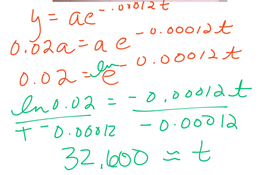 y = ae^-.00012t
0.02a = a e^-0.00012t
0.02 = e^-0.00012t
ln 0.02 = -0.00012t
-0.00012 -0.00012
32,600 ≈ t